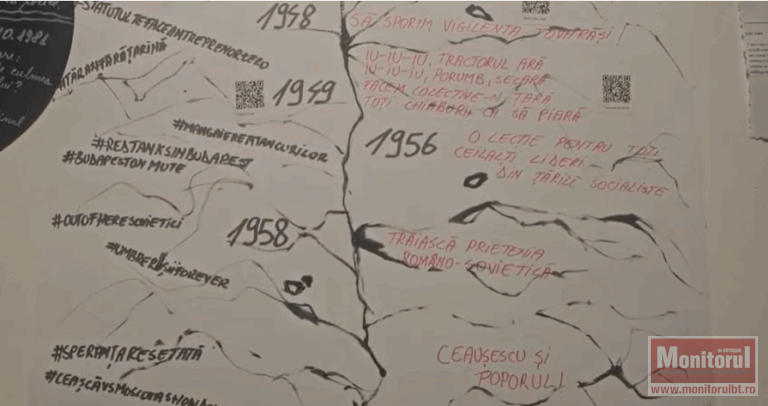 #STATUTULTEFACEANTREPRENORLEO
1948
SĂ SPORIM VIGILENȚA TOVARĂȘI!
10.1981
#ȚARAFĂRĂȚĂRINĂ
1949
IU-IU-IU, TRACTORUL ARĂ
IU-IU-IU, PORUMB, SECARĂ
FACEM COLECTIVE-N ȚARĂ
TOȚI CHIABURII CA SĂ PIARĂ
#MANGAIEREATANCURILOR
#REDTANKSINBUDAPEST
#BUDAPESTONMUTE
1956
O LECȚIE PENTRU TOȚI
CEILALȚI LIDERI
DIN ȚĂRILE SOCIALISTE
#OUTOFHERESOVIETICI
1958
TRĂIASCĂ PRIETENIA
ROMÂNO-SOVIETICĂ
#SPERANȚARESETATĂ
CEAUȘESCU ȘI
POPORUL!
Monitorul
www.monitorulbt.ro